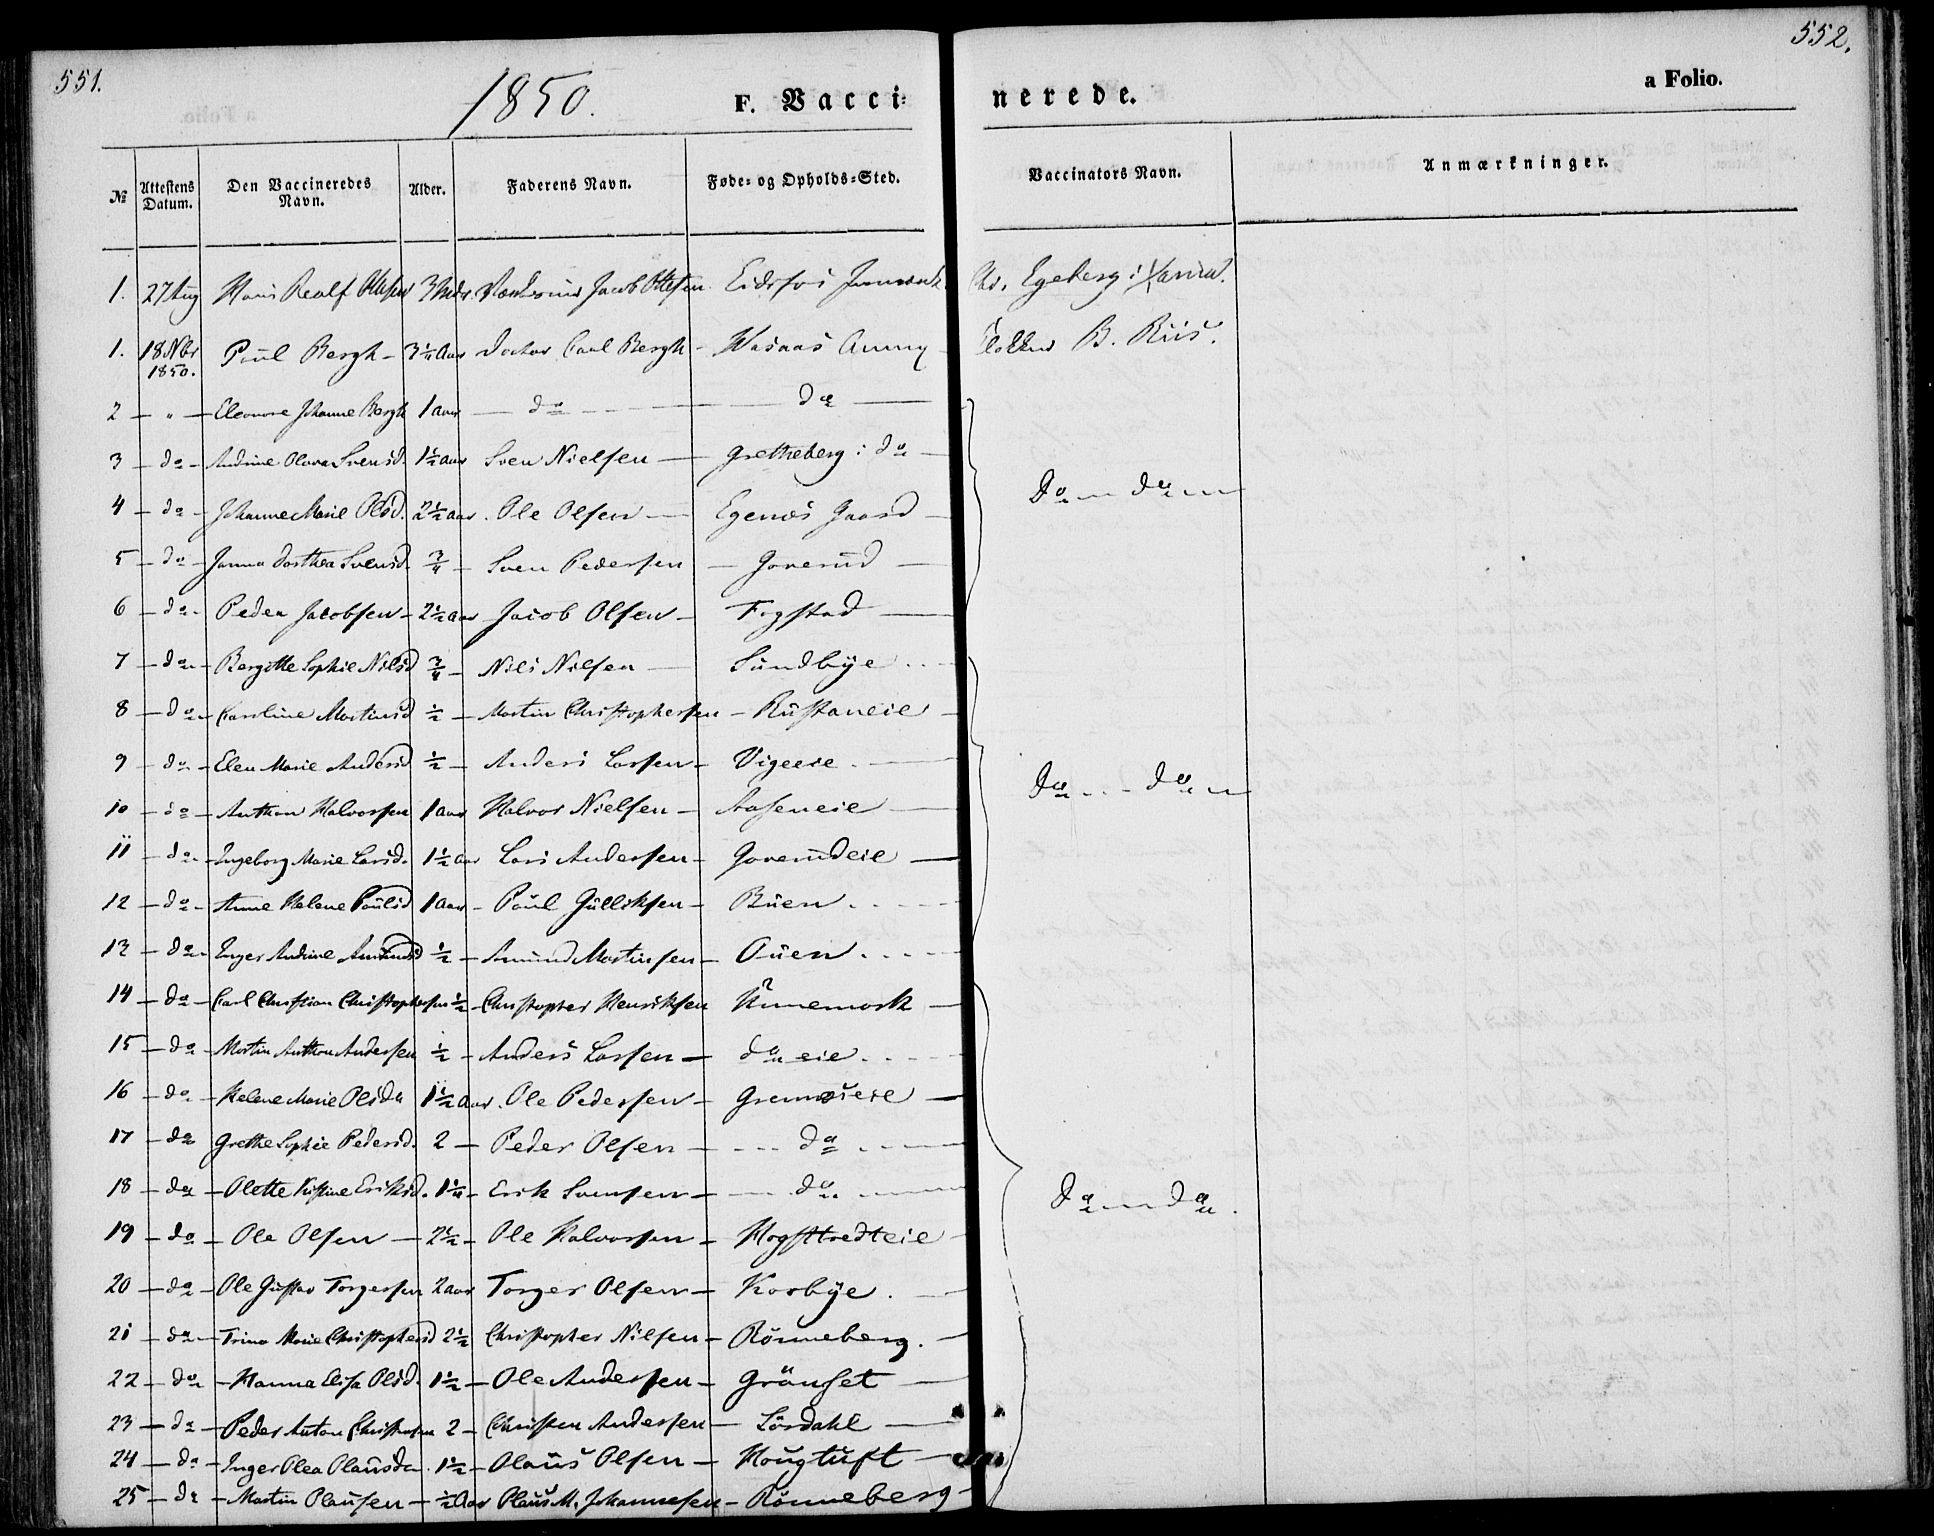 551.
552.
1850.
F. Vacci-
nerede.
a Folio.
№ Attestens Datum. Den Vaccineredes Navn. Alder. Faderens Navn. Føde- og Opholds-Sted. Vaccinators Navn. Anmærkninger.
1. 27 Aug Hans Realf Ottesen 3 Mdr. Jacob Ottesen Eidsfos Jernværk Chr. Egeberg i
1. 18 Nbr 1850. Paul Bergh - 3¼ Aar Doctor Carl Bergh - Wasaas B. Riis.
2 - " - Eleonore Johanne Bergh 1 aar - do - do -
3 - do - Andrine Olava Svensd. 1½ aar Sven Nielsen - Gretheberg i do - do - do -
4 - do - Johanne Marie Olsd. 2½ aar. Ole Olsen - Egenæs Gaard -
5 - do - Janna Dorthea Svensd. ¾ - Sven Pedersen - Goverud -
6 - do - Peder Jacobsen - 2½ aar Jacob Olsen - Fogstad -
7 - do - Bergitte Sophie Nilsd ¾ - Nils Nilsen - Sundbye
8 - do - Caroline Martinsd ½ - Martin Christophersen - Rustaneie -
9 - do - Elen Marie Andersd ½ - Anders Larsen - Vigeeie - do - do -
10 - do - Anthon Halvorsen 1 aar Halvor Nielsen - Aaseneie -
11 - do - Ingeborg Marie Larsd. 1½ aar Lars Andersen - Goverudeie -
12 - do - Anne Helene Paulsd 1 aar - Paul Gulliksen - Buen
13 - do - Inger Andrine Amundsd ½ - Amund Martinsen - Ouen
14 - do - Carl Christian Christophersen ½ - Christopher Henriksen Unnemork -
15 - do - Martin Anthon Andersen ½ - Anders Larsen - do eie
16 - do - Helene Marie Olsda 1½ aar. Ole Pedersen - Grennæseie -
17 - do Grethe Sophie Pedersd. 2 - Peder Olsen - do
18 - do - Olette Kistine Eriksd. 1¼ - Erik Svensen - do - do - do.
19 - do - Ole Olsen - 2½ - Ole Halvorsen - Hogstvedteie -
20 - do - Ole Gustav Torgersen 2 aar Torger Olsen - Korbye
21 - do - Trina Marie Christophersd 2½ Christopher Nilsen - Rønneberg. -
22 - do - Hanna Elisa Olsd. 1½ - Ole Andersen - Grønset -
23 - do - Peder Anton Christensen 2 - Christen Andersen - Lørdahl -
24 - do - Inger Olea Olausda. 1½ - Olaus Olsen - Hougtuft -
25 - do - Martin Olausen - ½ Aar Olaus M. Johannesen - Rønneberg -